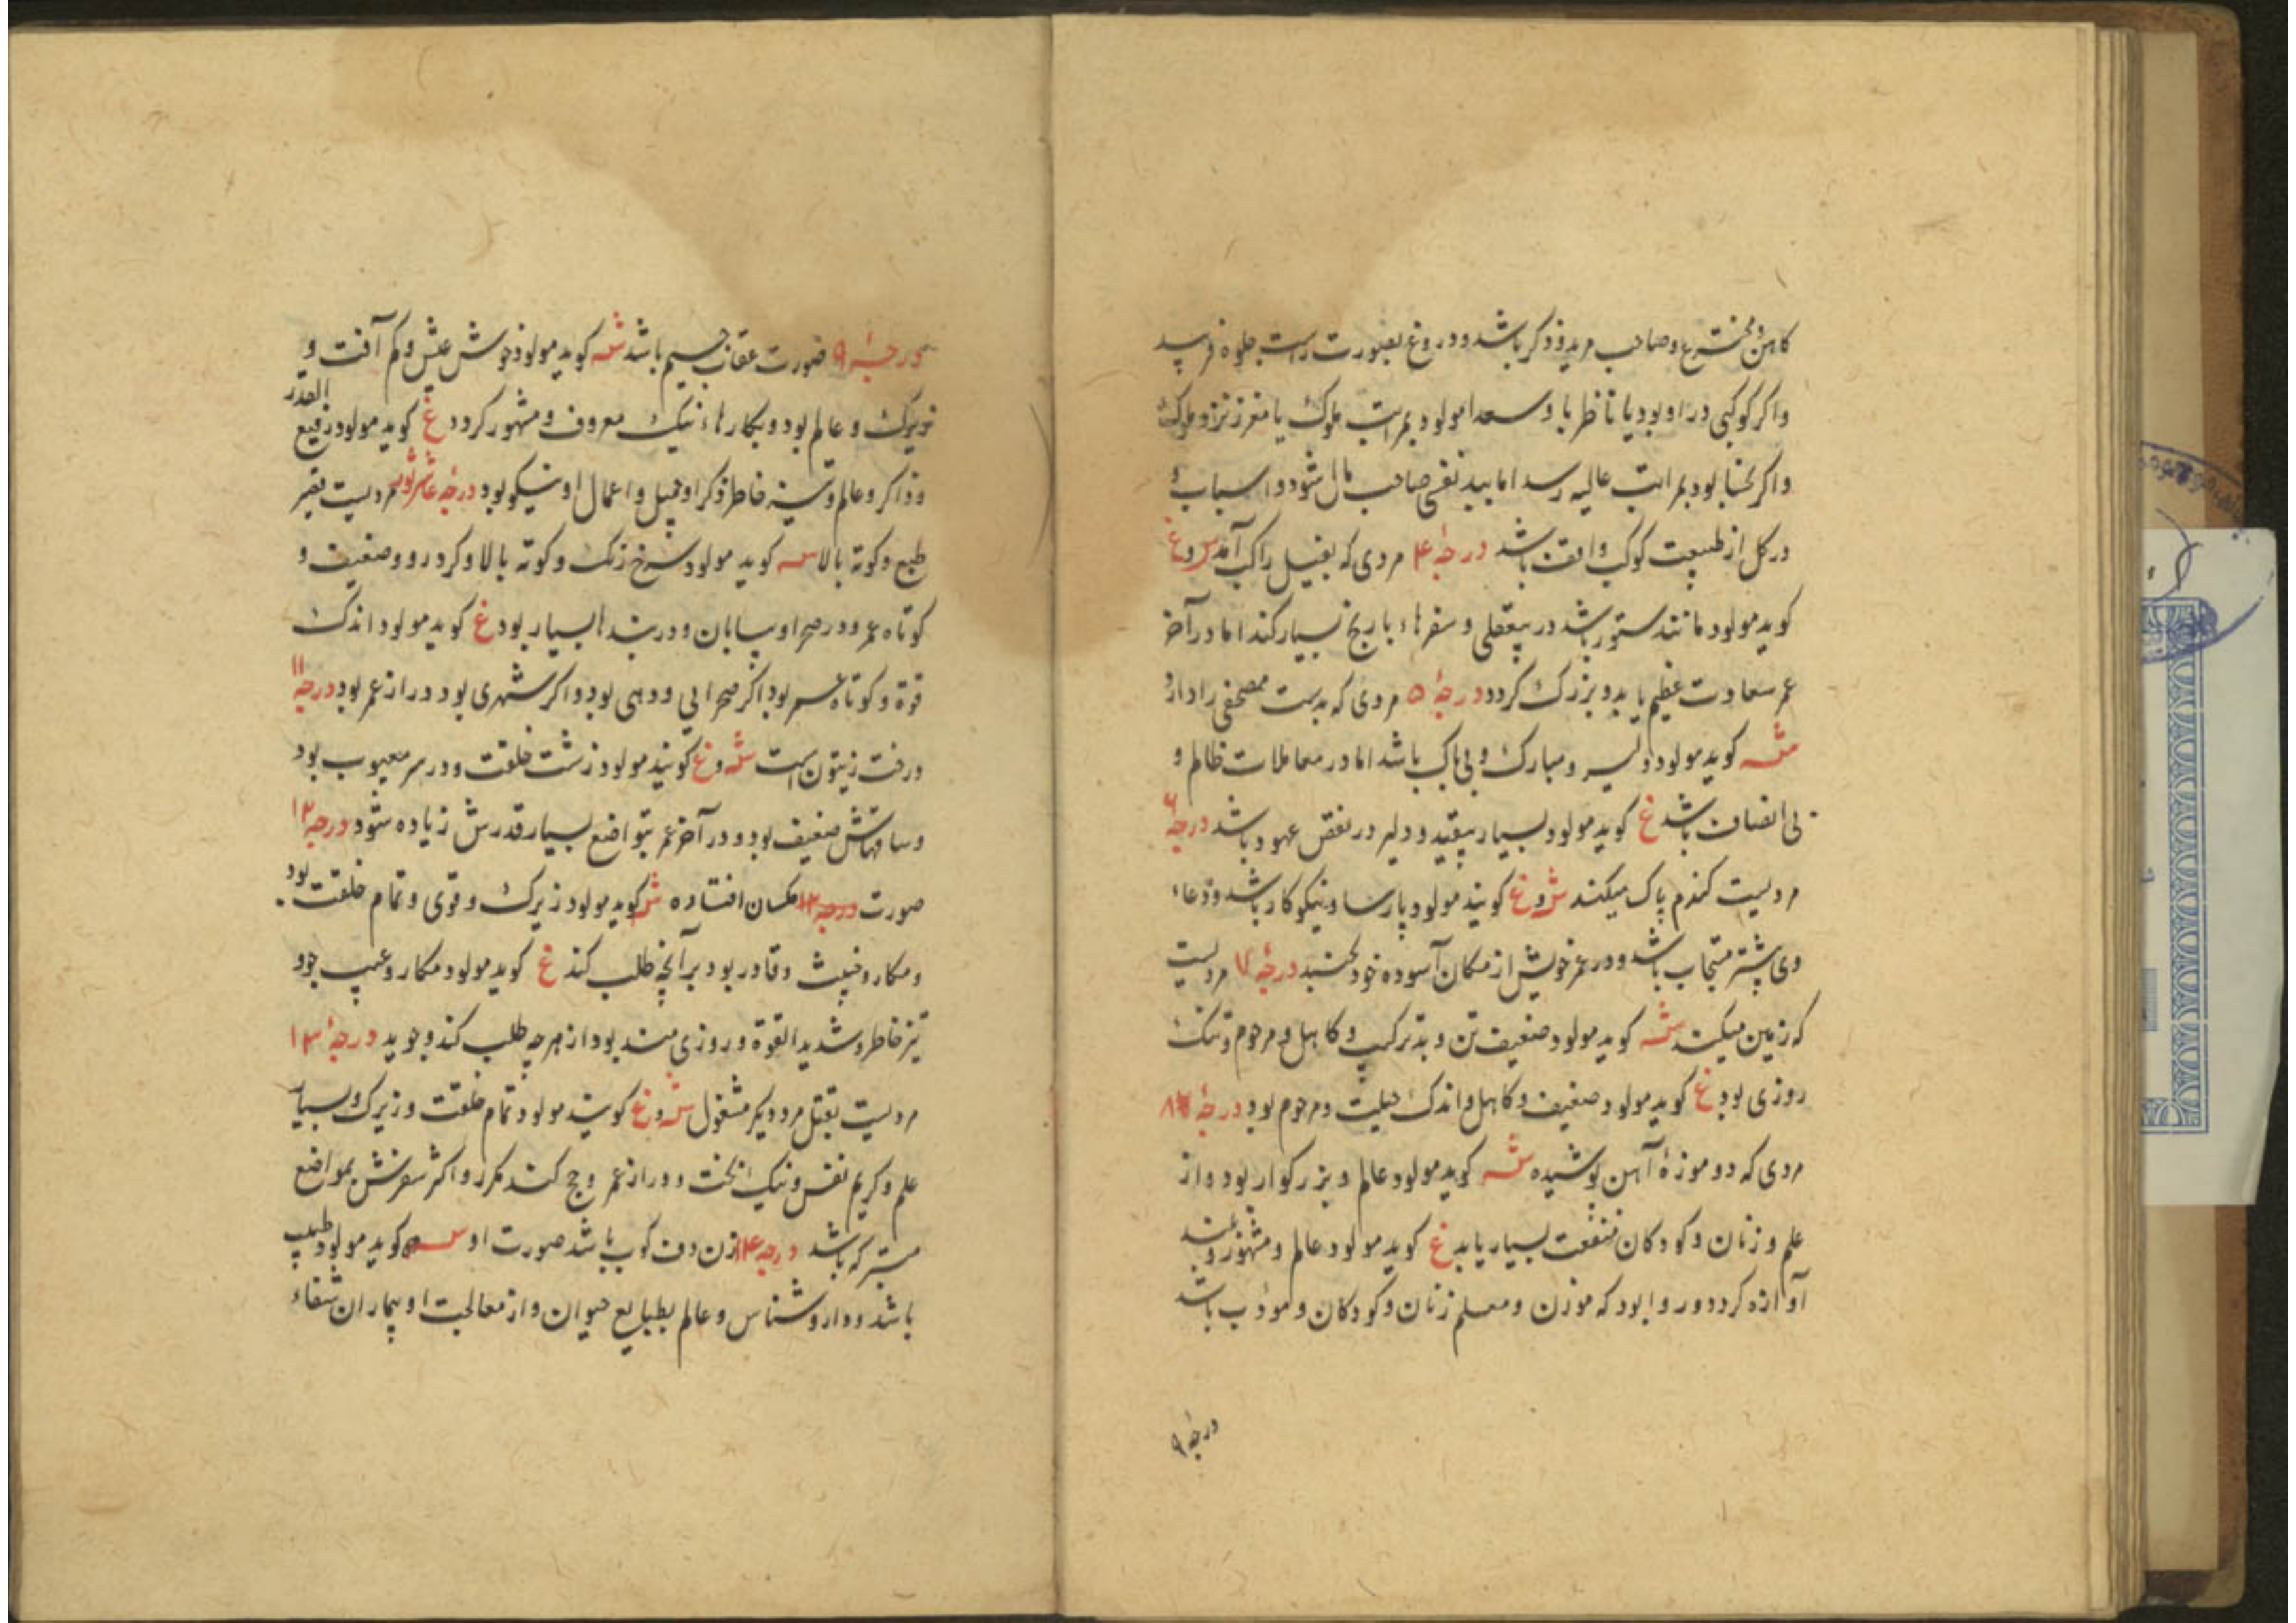 کاهن و مخترع و صاحب مرید و ذکر باشد و دروغ بصورت راست جلوه
واکر کوکبی در او بود یا ناظر با و سعدا مولود بمراتب ملوک یا
واکر نحسا بود بمراتب عالیه رسد اما صاحب مال شود و اسباب و
در کل از طبیعت کوکب واقف باشد درجهٔ ۴ مردی که بفیل راکب آمد س و غ
کوید مولود مانند ستور باشد در بیعقلی و سفرهاء با رنج بسیار کند اما در آخر
عمر سعادت عظیم یابد و بزرک کردد درجهٔ ۵ مردی که بدست مصحفی را دارد
ش کوید مولود دلیر و مبارک و بی باک باشد اما در معاملات ظالم و
بی انصاف باشد غ کوید مولود بسیار بیقید و دلیر در نقض عهود باشد درجهٔ ۶
مردیست کندم پاک میکند ش و غ کویند مولود پارسا و نیکوکار باشد و دعاء
وی بیشتر مستجاب باشد و در عمر خویش از مکان آسوده خود نجنبد درجهٔ ۷ مردیست
که زمین میکند ش کوید مولود ضعیف تن و بد ترکیب و کاهل و مرحوم و تنک
روزی بود غ کوید مولود ضعیف و کاهل و اندک حیلت و مرحوم بود درجهٔ ۸
مردی که دو موزهٔ آهن پوشیده ش کوید مولود عالم و بزرکوار بود و از
علم و زنان و کودکان منفعت بسیار یابد غ کوید مولود عالم و مشهور و بلند
آوازه کردد و روا بود که موذن و معلم زنان و کودکان و مودب باشد
درجهٔ ۹
درجهٔ ۹ صورت عقاب جسیم باشد ش کوید مولود خوش عیش و کم آفت و
زیرک و عالم بود و بکارهاء نیک معروف و مشهور کردد غ کوید مولود رفیع القدر
و ذاکر و عالم و خاطر ذکر او جمیل و اعمال او نیکو بود درجهٔ عاشر ثور مردیست
طبع و کوته بالا س کوید مولود سرخ رنک و کوته بالا و کرد رو و ضعیف و
کوتاه عمر و در صحرا و بیابان و در بندها بسیار بود غ کوید مولود اندک
قوة و کوتاه عمر بود اکر صحرایی و دهی بود واکر شهری بود دراز عمر بود درجهٔ ۱۱
درخت زیتون است ش و غ کویند مولود زشت خلقت و در سر معیوب بود
و ساقهاش ضعیف بود و در آخر عمر بتواضع بسیار قدرش زیاده شود درجهٔ ۱۲
صورت درجهٔ ۱۳ مکسان افتاده ش کوید مولود زیرک و قوی و تمام خلقت بود
و مکار و خبیث و قادر بود بر آنچه طلب کند غ کوید مولود مکار و عیب جو و
تیز خاطر و شدید القوة و روزی مند بود از هر چه طلب کند و جوید درجهٔ ۱۳
مردیست بقتل مرد دیکر مشغول ش و غ کویند مولود تمام خلقت و زیرک و بسیار
علم و کریم نفس و نیک بخت و دراز عمر و حج کند مکرر و اکثر سفرش بمواضع
متبرکه باشد درجهٔ ۱۴ زن دف کوب باشد صورت او س کوید مولود طبیب
باشد و داروشناس و عالم بطبایع حیوان و از معالجت او بیماران شفاء